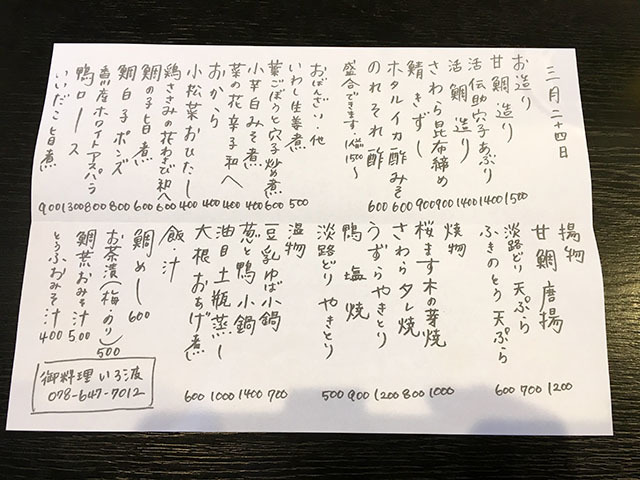 三月二十四日
お造り
甘鯛 造り 1500
活伝助穴子あぶり 1400
活鯛 造り 1400
さわら昆布締め 900
鯖きずし 900
ホタルイカ酢みそ 600
のれそれ酢 600
盛合できます。1人前1500〜
おばんざい・他
いわし生姜煮 500
葉ごぼうと穴子炒め煮 600
小芋白みそ煮 400
菜の花辛子和へ 400
おから 400
小松菜おひたし 400
鶏ささみの花わさび和へ 600
鯛の子旨煮 600
鯛白子ポンズ 800
産ホワイトアスパラ 800
鴨ロース 1300
いいだこ旨煮 900
揚物
甘鯛唐揚 1200
淡路どり天ぷら 700
ふきのとう天ぷら 600
焼物
桜ます木の芽焼 1000
さわらタレ焼 800
うずらやきとり 1200
鴨塩焼 900
淡路どりやきとり 500
温物
豆乳ゆば小鍋 700
葱と鴨小鍋 1400
油目土瓶蒸し 1000
大根おあげ煮 600
飯・汁
鯛めし 600
お茶漬(梅・のり) 500
鯛葉おみそ汁 500
とうふおみそ汁 400
御料理 いろ波
078-647-7012